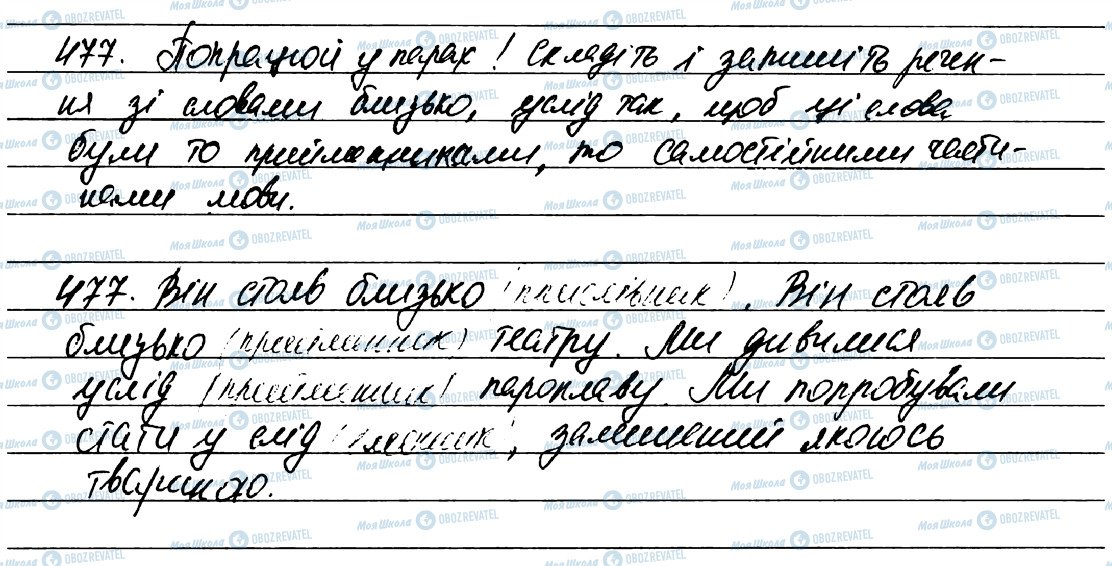 477. Попрацюй у парах! Складіть і запишіть речен-
ня зі словами близько, услід так, щоб ці слова
були то прийменниками, то самостійними части-
нами мови.
477. Він стояв близько (прислівник). Він стояв
близько (прийменник) театру. Ми дивилися
услід (прийменник) пароплаву. Ми попробували
стати у слід (іменник), залишений якоюсь
твариною.